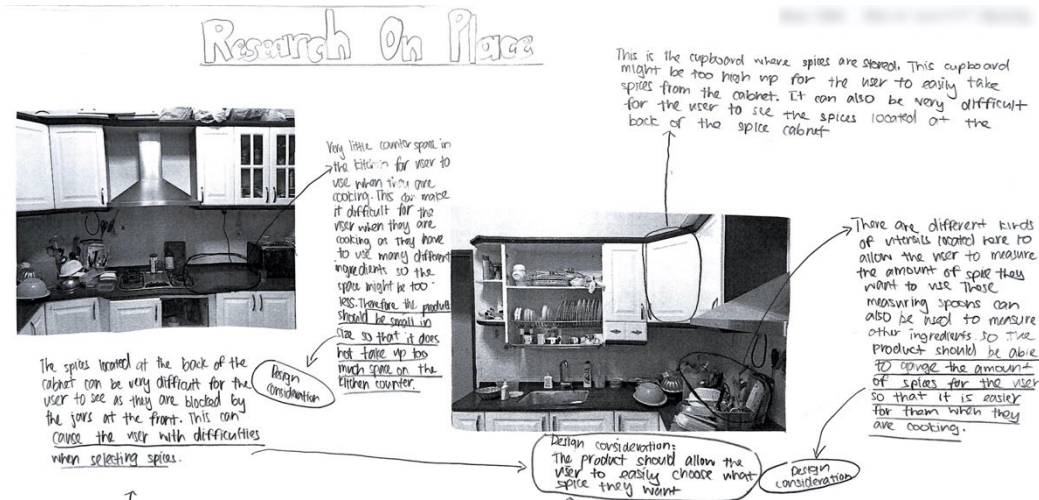 Research On Place
This is the cupboard where spices are stored. This cupboard
might be too high up for the user to easily take
spices from the cabnet. It can also be very difficult
for the user to see the spices located at the
back of the spice cabnet
Very little counter space in
the kitchen for user to
use when they are
cooking. This can make
it difficult for the
user when they are
cooking as they have
to use many different
ingredients so the
space might be too
less. Therefore the product
should be small in
size so that it does
not take up too
much space on the
kitchen counter.
Design
consideration
There are different kinds
of utensils located here to
allow the user to measure
the amount of spice they
want to use These
measuring spoons can
also be used to measure
other ingredients. so the
product should be able
to the amount
of spices for the user
so that it is easier
for them when they
are cooking.
Design
consideration
The spices located at the back of the
cabnet can be very difficult for the
user to see as they are blocked by
the jars at the front. This can
cause the user with difficulties
when selecting spices.
Design consideration:
The product should allow the
user to easily choose what
spice they want